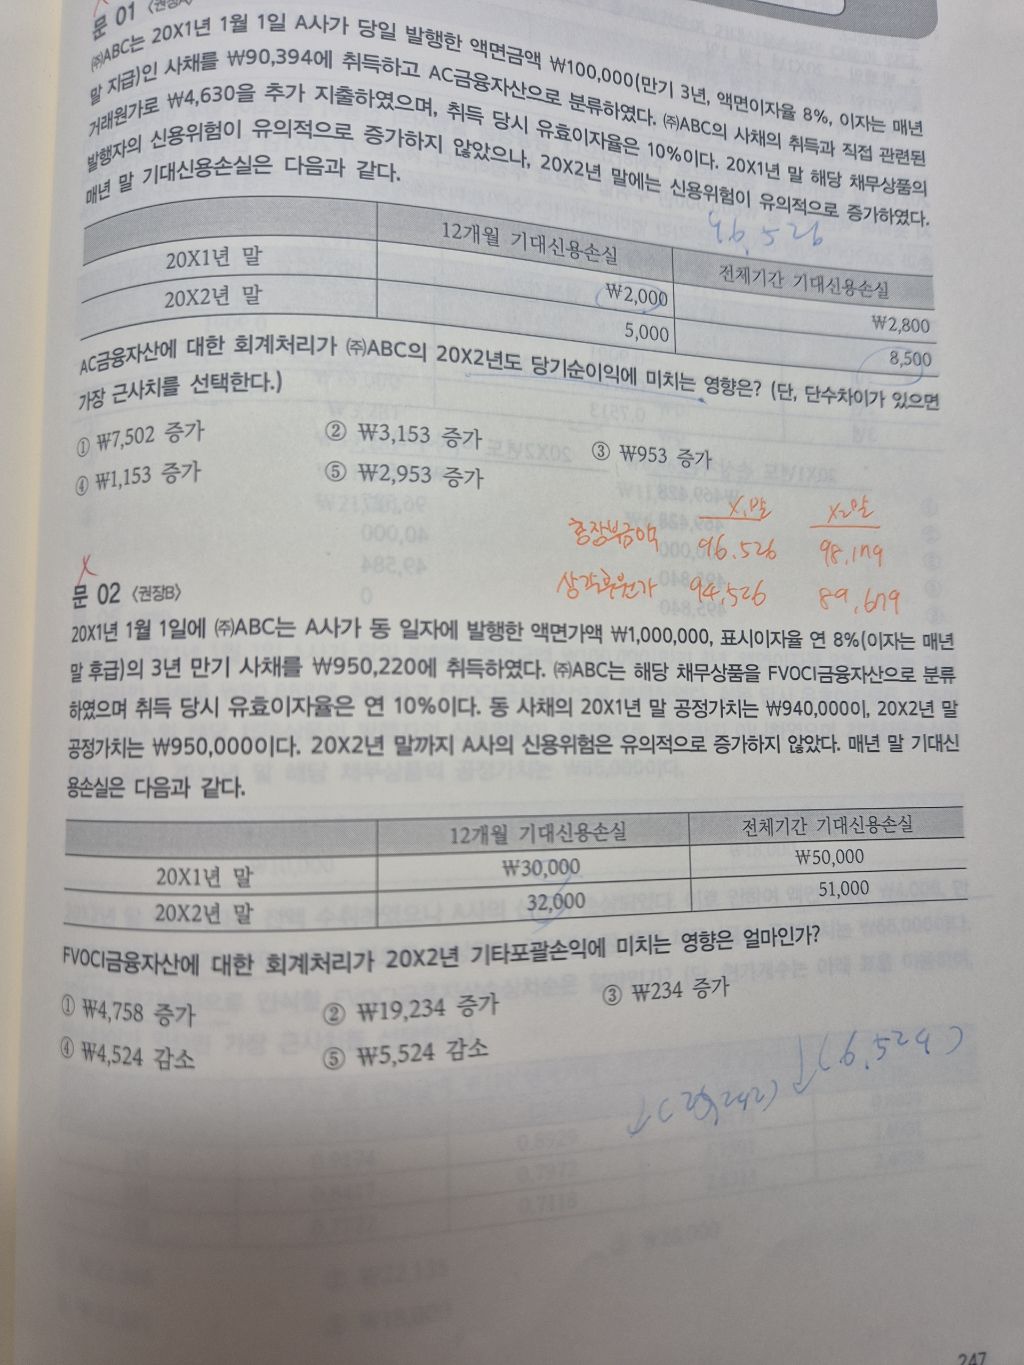 문 01 〈권장A〉
㈜ABC는 20X1년 1월 1일 A사가 당일 발행한 액면금액 ₩100,000(만기 3년, 액면이자율 8%, 이자는 매년
말 지급)인 사채를 ₩90,394에 취득하고 AC금융자산으로 분류하였다. ㈜ABC의 사채의 취득과 직접 관련된
거래원가로 ₩4,630을 추가 지출하였으며, 취득 당시 유효이자율은 10%이다. 20X1년 말 해당 채무상품의
발행자의 신용위험이 유의적으로 증가하지 않았으나, 20X2년 말에는 신용위험이 유의적으로 증가하였다.
매년 말 기대신용손실은 다음과 같다.
96,526
12개월 기대신용손실 전체기간 기대신용손실
20X1년 말 ₩2,000 ₩2,800
20X2년 말 5,000 8,500
AC금융자산에 대한 회계처리가 ㈜ABC의 20X2년도 당기순이익에 미치는 영향은? (단, 단수차이가 있으면
가장 근사치를 선택한다.)
① ₩7,502 증가 ② ₩3,153 증가 ③ ₩953 증가
④ ₩1,153 증가 ⑤ ₩2,953 증가
X1말 X2말
총장부금액 96,526 98,179
상각후원가 94,526 89,679
문 02 〈권장B〉
20X1년 1월 1일에 ㈜ABC는 A사가 동 일자에 발행한 액면가액 ₩1,000,000, 표시이자율 연 8%(이자는 매년
말 후급)의 3년 만기 사채를 ₩950,220에 취득하였다. ㈜ABC는 해당 채무상품을 FVOCI금융자산으로 분류
하였으며 취득 당시 유효이자율은 연 10%이다. 동 사채의 20X1년 말 공정가치는 ₩940,000이, 20X2년 말
공정가치는 ₩950,000이다. 20X2년 말까지 A사의 신용위험은 유의적으로 증가하지 않았다. 매년 말 기대신
용손실은 다음과 같다.
12개월 기대신용손실 전체기간 기대신용손실
20X1년 말 ₩30,000 ₩50,000
20X2년 말 32,000 51,000
FVOCI금융자산에 대한 회계처리가 20X2년 기타포괄손익에 미치는 영향은 얼마인가?
① ₩4,758 증가 ② ₩19,234 증가 ③ ₩234 증가
④ ₩4,524 감소 ⑤ ₩5,524 감소
247